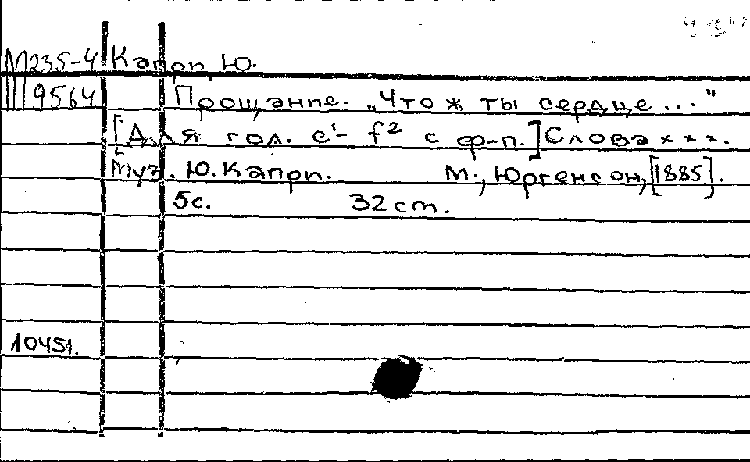 М235-4 Капри Ю.
9564 Прощание. „Что ж ты сердце..."
[Для гол. е¹- f² с ф-п.] Слова х х х.
Муз. Ю. Капри. М., Юргенсон, [1885].
5с. 32 cm.
10451.